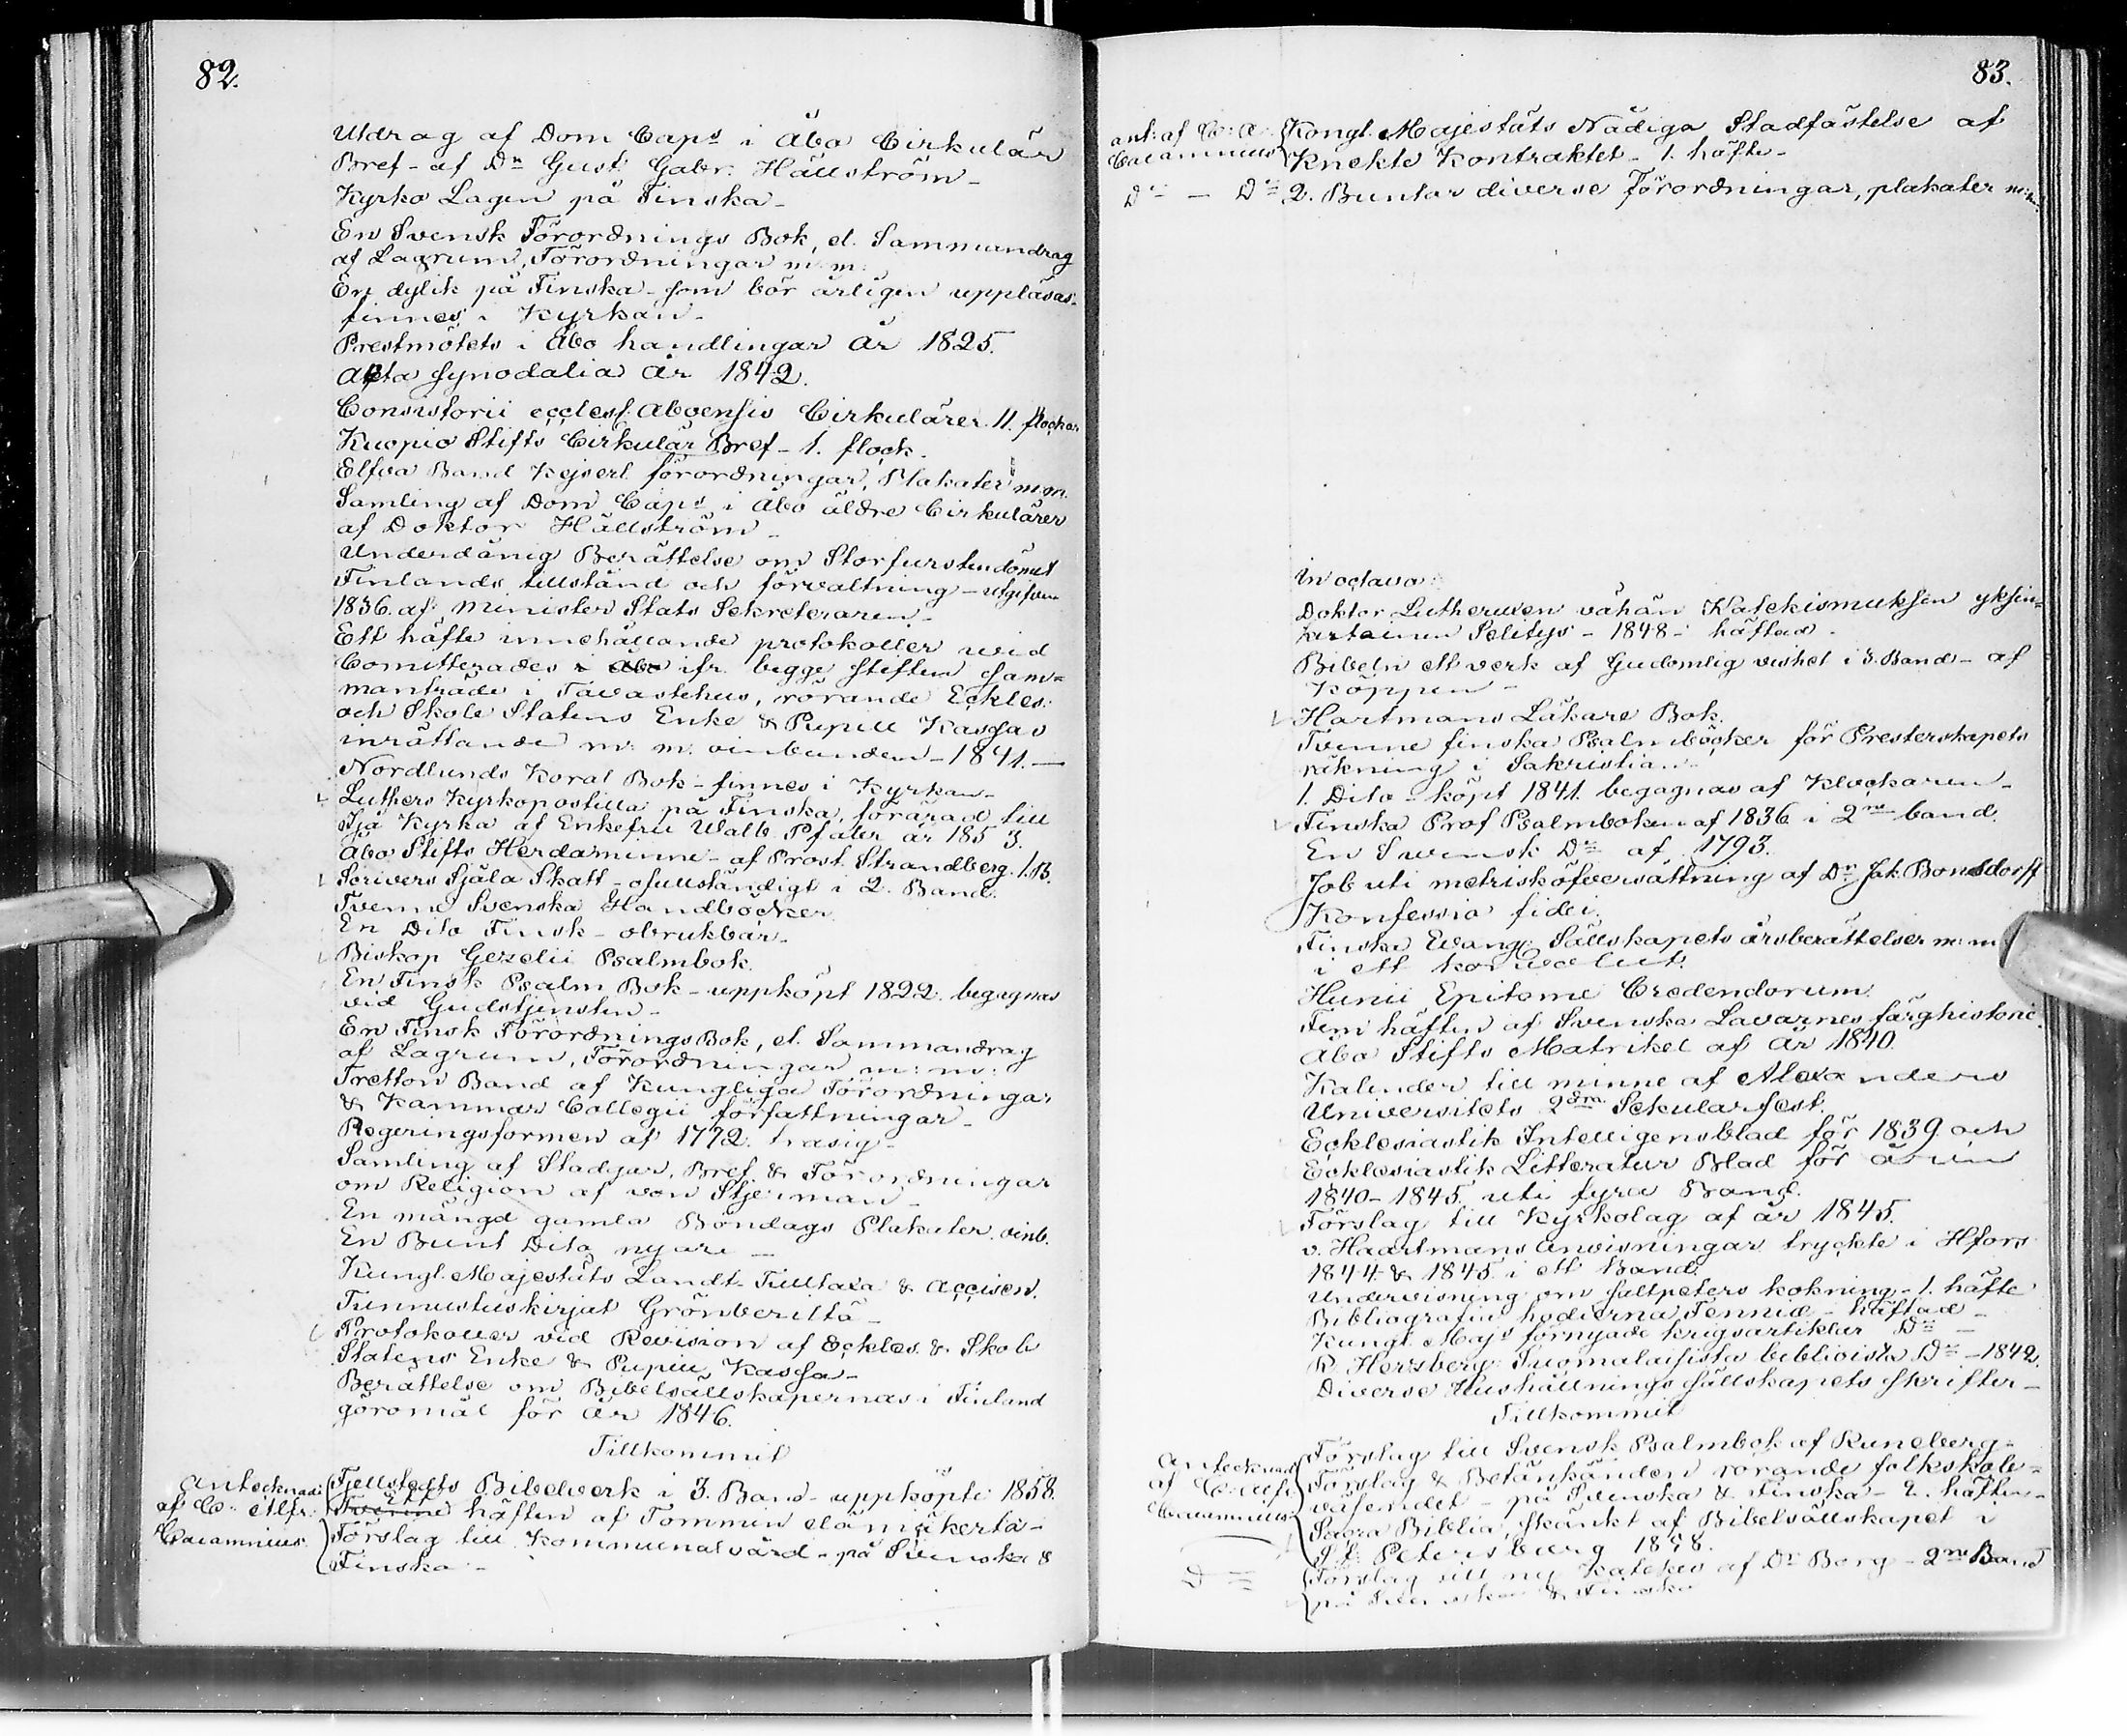 82.
Utdrag af Dom Caps i Åbo Cirkulär
Bref - af Dn Gust. Gabr. Hällström -
Kyrko Lagen på Finska -
En Svensk Förordnings Bok, el. Sammandrag
af Lagrum, Förordningar m: m:
En dylik på Finska - som bör årligen uppläsas -
finnes i Kyrkan -
Prestmötets i Åbo handlingar År 1825.
Akta synodalia År 1842.
Consistorii ecclesf. Aboensis Cirkulärer 11. flockar
Kuopio Stifts Cirkulär Bref - 1. flock.
Elfva Band Kejserl. förordningar, Plakater m.m.
Samling af Dom Caps i Åbo äldre Cirkulärer
af Doktor Hällström -
Underdånig Berättelse om Storfurstendömet
Finlands tillstånd och förvaltning - utgifven
1836. af Minister Stats Sekreteraren -
Ett häfte innehållande protokoller wid
Comitterades ifr. begge Stiften sam=
manträde i Tavastehus, rörande Eckles:
och Skole Statens Enke & Pupill Kassas
inrättande m: m. oinbunden - 1841. -
Nordlunds Koral Bok - finnes i Kyrkan -
Luthers Kyrkopostilla på Finska, förärad till
Ijä Kyrka af Enkefru Walb. Pfaler år 1853.
Åbo Stifts Herdaminne - af Prost. Strandberg. 1. B.
Scrivers Själa Skatt - ofullständigt i 2. Band.
Tvenne Svenska Handböcker
En Dito Finsk - obrukbar -
Biskop Gezelii Psalmbok.
En Finsk Psalm Bok - uppköpt 1822. begagnas
vid Gudstjensten -
En Finsk Förordnings Bok, el. Sammandrag
af Lagrum, Förordningar m: m:
Tretton Band af Kungliga Förordningar
& Kammar Collegii författningar -
Regeringsformen af 1772. trasig -
Samling af Stadgar, Bref & Förordningar
om Religion af von Stjerman -
En mängd gamla Böndags Plakater. oinb.
En Bunt Dito nyare -
Kungl. Majestäts Landt - Tulltaxa & Accisen.
Tunnustuskirjat Grönberiltä -
Protokoller vid Revision af Eckles. & Skole
Statens Enke & Pupill Kassa -
Berättelse om Bibelsällskapernas i Finland
göromål för År 1846.
Tillkommit
Antecknadt
af C. Alfr.
Calamnius.
Fjellstedts Bibelverk i 3. Band - uppköpte 1858.
Tvenne Ett häften af Tommin elämäkerta -
Förslag till Kommunalvård - på Svenska &
Finska -
83.
ant: af C: A.
Calamnius
Kongl. Majestäts Nådiga Stadfästelse af
Knekte Kontraktet - 1. häfte -
Do - Do 2. Buntar diverse förordningar, plakater m:m:
In octavo:
Doktor Lutheruxen vähän Katekismuksen yksin=
kertainen Selitys - 1848 - häftad -
Bibeln ett verk af Gudomlig vishet i 3. Band - af
Köppen -
Hartmans Läkare Bok.
Tvenne finska Psalmböcker för Presterskapets
räkning i Sakristian -
1. Dito - köpt 1841. begagnas af Klockaren -
Finska Prof Psalmboken af 1836 i 2ne band.
En Svensk Do af 1793.
Job uti metrisk öfversättning af Dr Jak. Bonsdorff
Konfessio fidei.
Finska Evang. Sällskapets årsberättelser m: m
i ett konvolut.
Hunii Epitome Credendorum.
Fem häften af Svenska Lavarnes färghistorie.
Åbo Stifts Matrikel af År 1840.
Kalender till minne af Alexanders
Universitets 2dra Sekularfest.
Ecklesiastik Intelligensblad för 1839 och
Ecklesiastik Litteratur Blad för åren
1840 - 1845. uti fyra Band.
Förslag till Kyrkolag af år 1845.
v. Haartmans Anvisningar tryckte i Hfors
1844 & 1845 i ett Band.
Undervisning om saltpeters kokning - 1. häfte
Bibliografia hodierna Fennia - häftad -
Kungl. Majs förnyade krigsartiklar Do -
R. Herzberg: Suomalaisista biblioista Do - 1842.
Diverse Hushållnings sällskapets skrifter -
Tillkommit
Antecknadt
af C. Alfr.
Calamnius
Förslag till Svensk Psalmbok af Runeberg -
Förslag & Betänkanden rörande folkskole=
väsendet - på Svenska & Finska - 2. häften -
Sacra Biblia, skänkt af Bibelsällskapet i
S:t Petersburg 1858.
Do
Förslag till ny Kateches af Dr Borg - 2ne Band
på Svenska & Finska